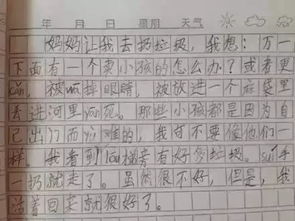 年 月 日 星期 天气
妈妈让我去扔垃圾，我想：万一
下面有一个卖小孩的怎么办？或者里
can，被 眼睛，被放进一个麻袋里
丢进河里 死。那些小孩都是因为自
己出门而yu难的，我可不要像他们一
样。我看到lou梯旁有好多垃圾。sui手
一扔就走了。虽然很不好，但是，我
活着回来就很好了。